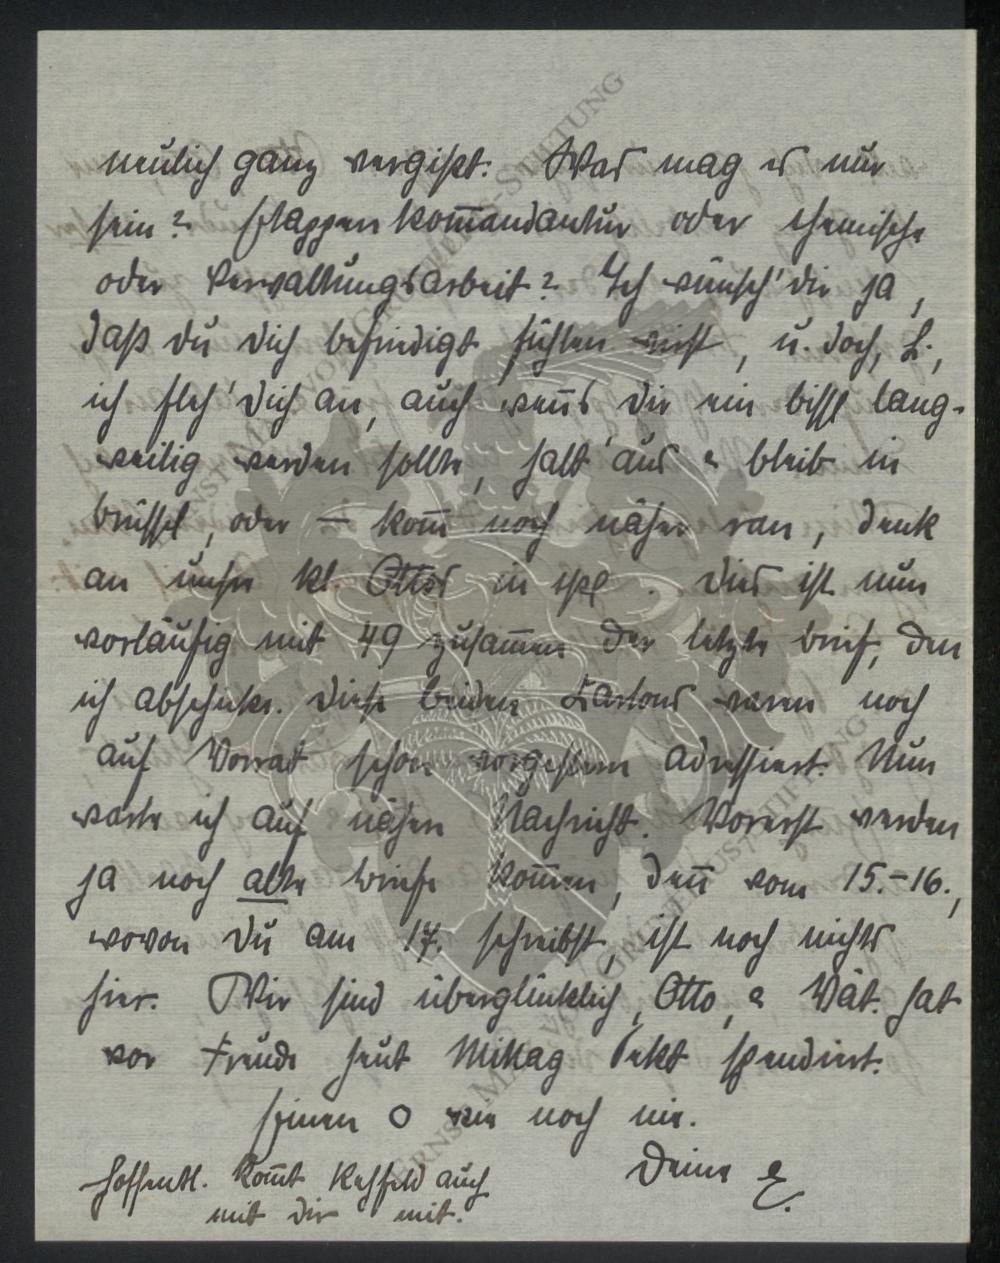 neulich ganz vergißt. Was mag es nur
sein? Etappenkom̅andantur oder chemische
oder Verwaltungsarbeit? Ich wünsch' dir ja,
daß du dich befriedigt fühlen wirst, u. doch, L.,
ich fleh' dich an, auch wen̅s dir ein bissl lang-
weilig werden sollte, halt aus & bleib in
Brüssel, oder — kom̅ noch näher ran, denk
an unsre kl. Ottos in spe. Dies ist nun
vorläufig mit 49 zusam̅en der letzte Brief, den
ich abschicke. Diese beiden Kartons waren noch
auf Vorrat schon vorgestern adressiert. Nun
warte ich auf nähere Nachricht. Vorerst werden
ja noch alte Briefe kom̅en, den̅ vom 15.-16.,
wovon du am 17. schreibst, ist noch nichts
hier. Wir sind überglücklich, Otto, & Vat. hat
vor Freude heut Mittag Sekt spendiert.
Einen O wie noch nie.
Deine E.
Hoffentl. kom̅t Rehfeld auch
mit dir mit.
ERNST MAX VON GRUNELIUS-STIFTUNG
ERNST MAX VON GRUNELIUS-STIFTUNG